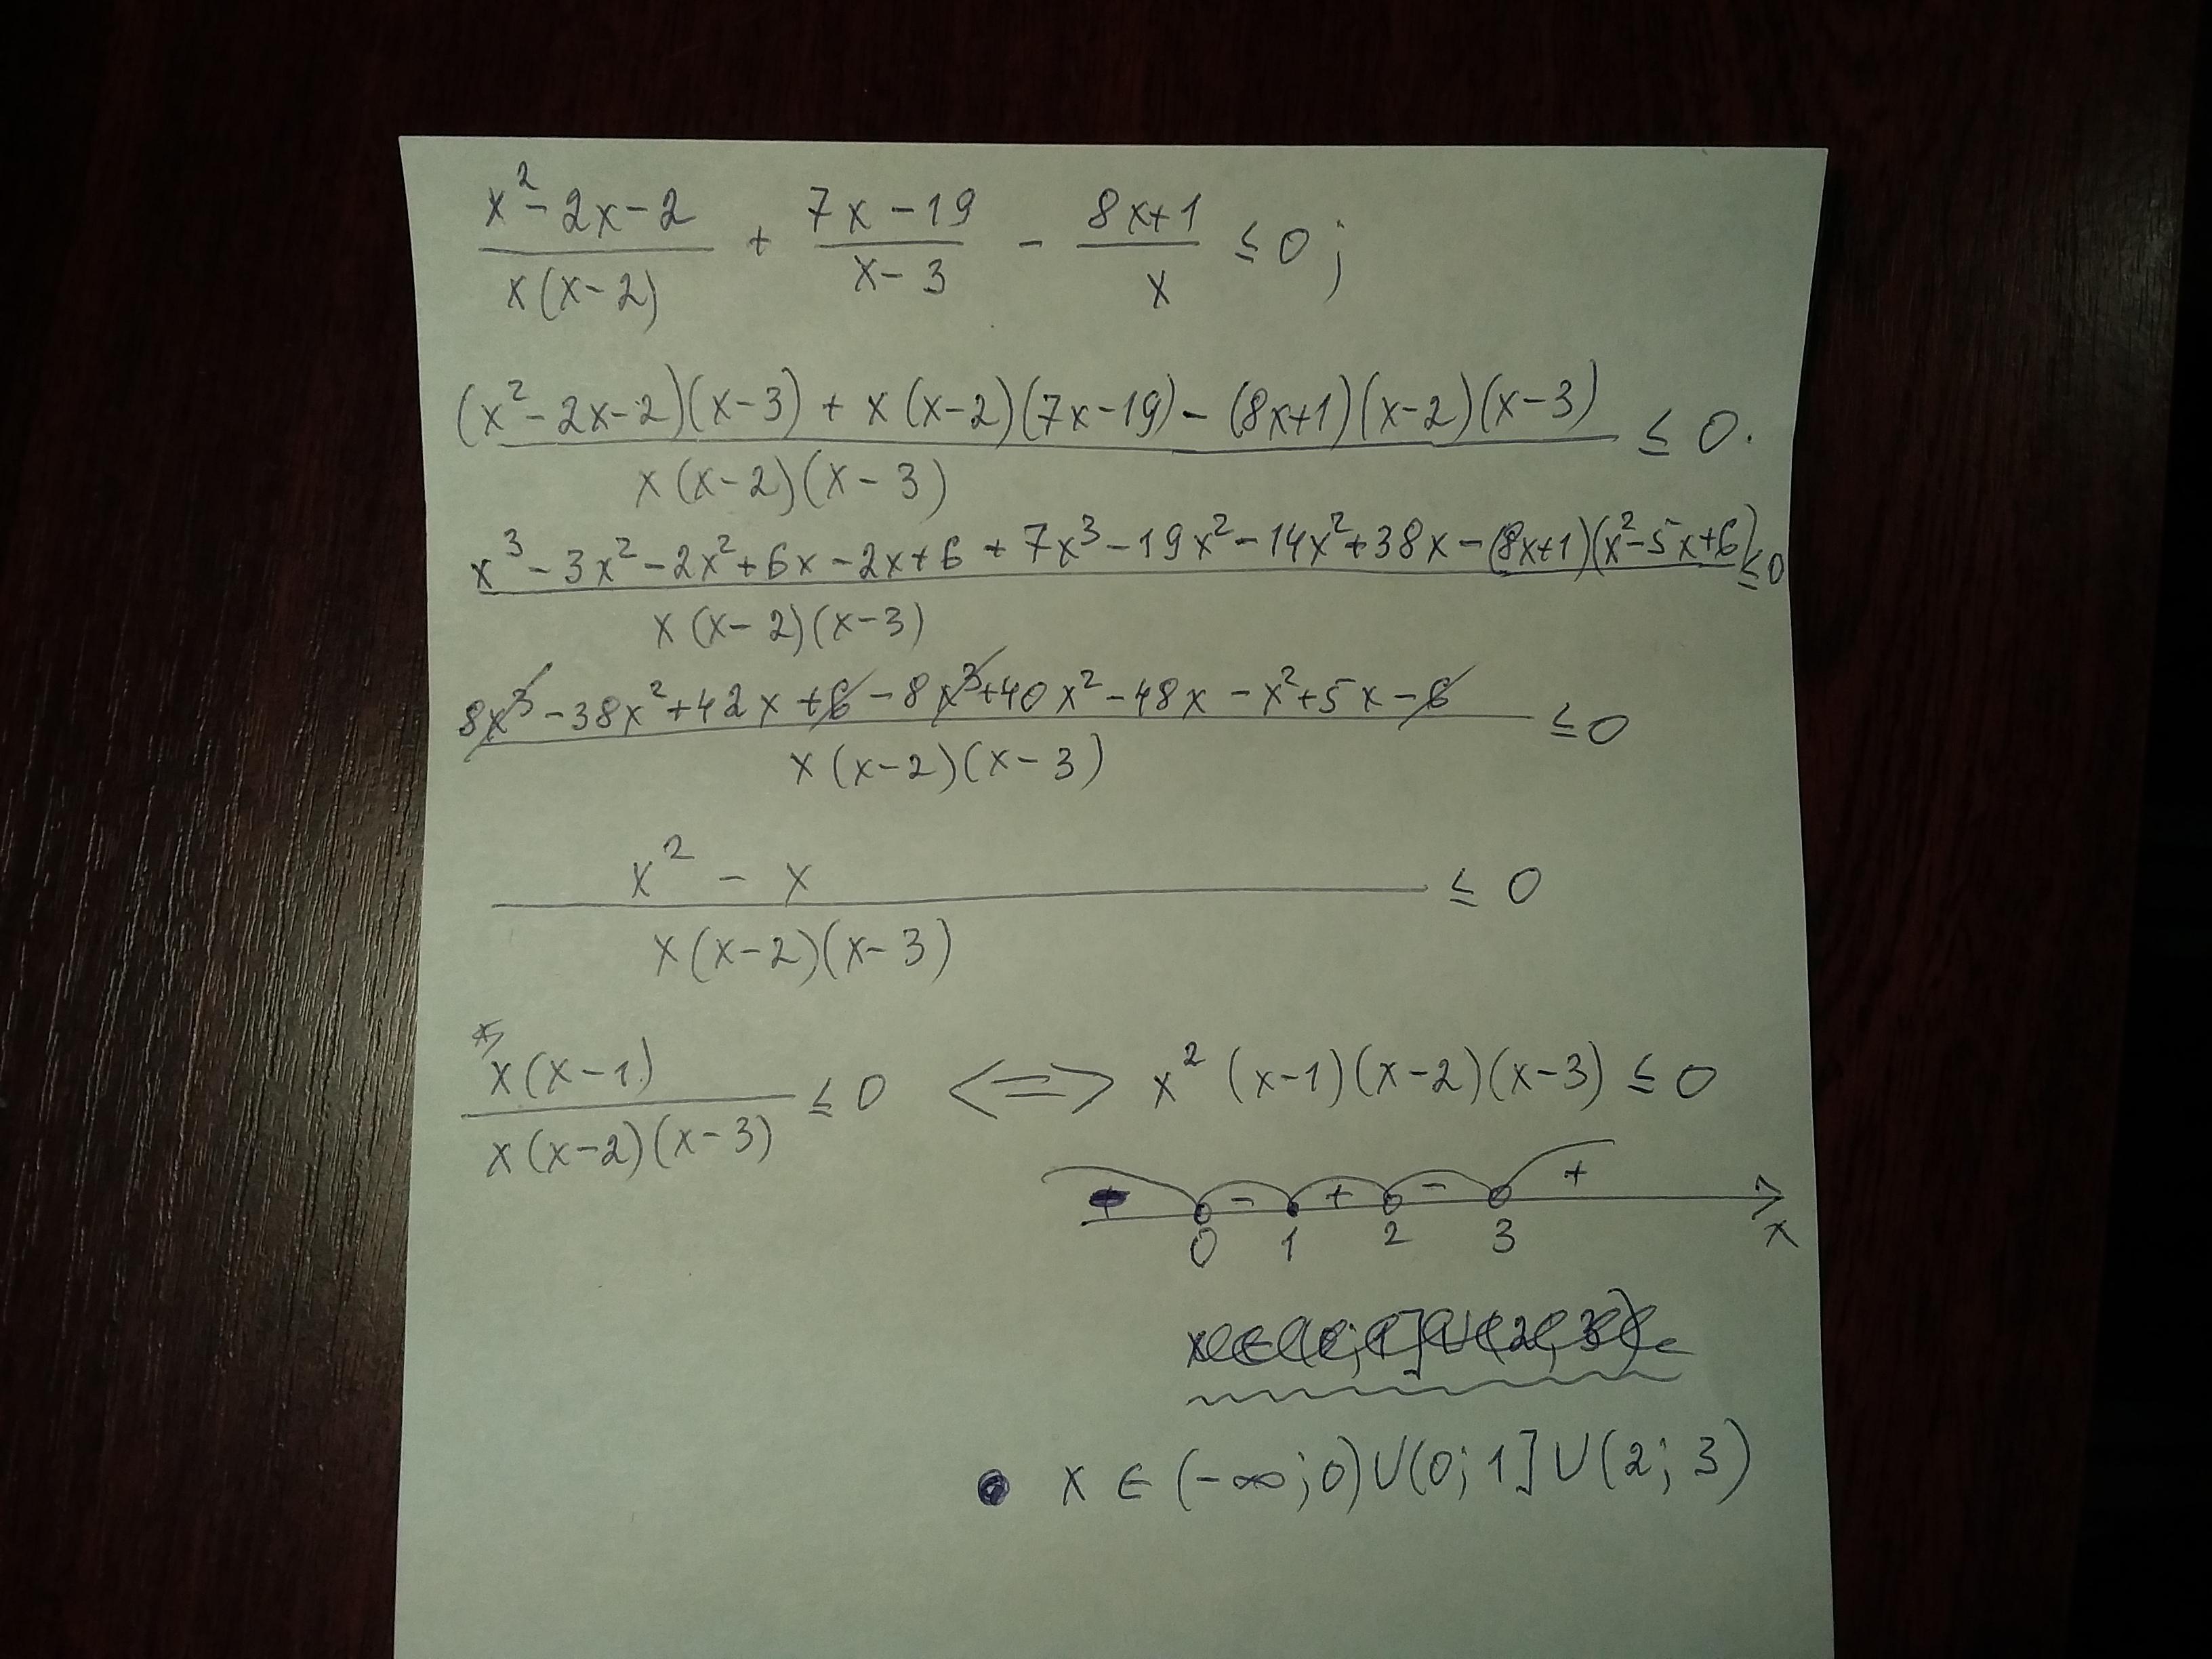 (x² - 2x - 2)/(x(x-2)) + (7x - 19)/(x - 3) - (8x+1)/x ≤ 0;
((x² - 2x - 2)(x - 3) + x(x-2)(7x-19) - (8x+1)(x-2)(x-3))/(x(x-2)(x-3)) ≤ 0.
(x³ - 3x² - 2x² + 6x - 2x + 6 + 7x³ - 19x² - 14x² + 38x - (8x+1)(x² - 5x + 6))/(x(x-2)(x-3)) ≤ 0
(8x³ - 38x² + 42x + 6 - 8x³ + 40x² - 48x - x² + 5x - 6)/(x(x-2)(x-3)) ≤ 0
(x² - x)/(x(x-2)(x-3)) ≤ 0
(x(x-1))/(x(x-2)(x-3)) ≤ 0 <=> x²(x-1)(x-2)(x-3) ≤ 0
- + - +
0 1 2 3 x
x ∈ (0; 1] ∪ (2; 3)
x ∈ (-∞; 0) ∪ (0; 1] ∪ (2; 3)